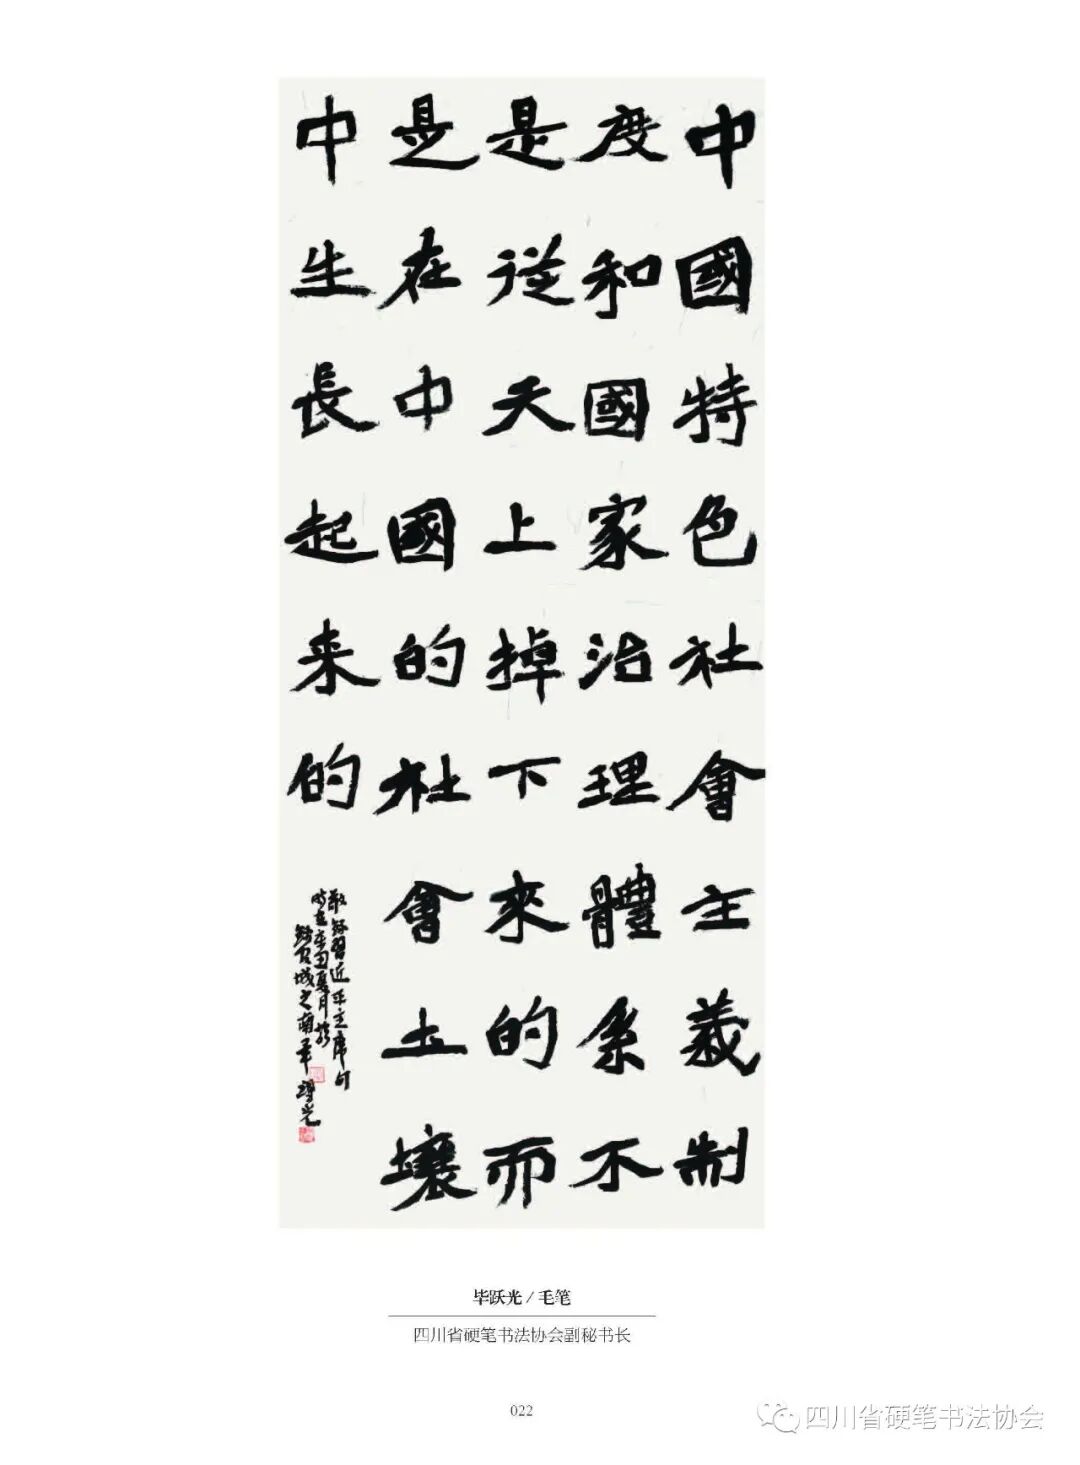 中國特色社會主義制
度和國家治理體系不
是從天上掉下來的而
是在中國的社會土壤
中生長起来的
敬録習近平主席句
在辛丑夏月於
錦官城之南畢躍光
毕跃光/毛笔
四川省硬笔书法协会副秘书长
022
四川省硬笔书法协会